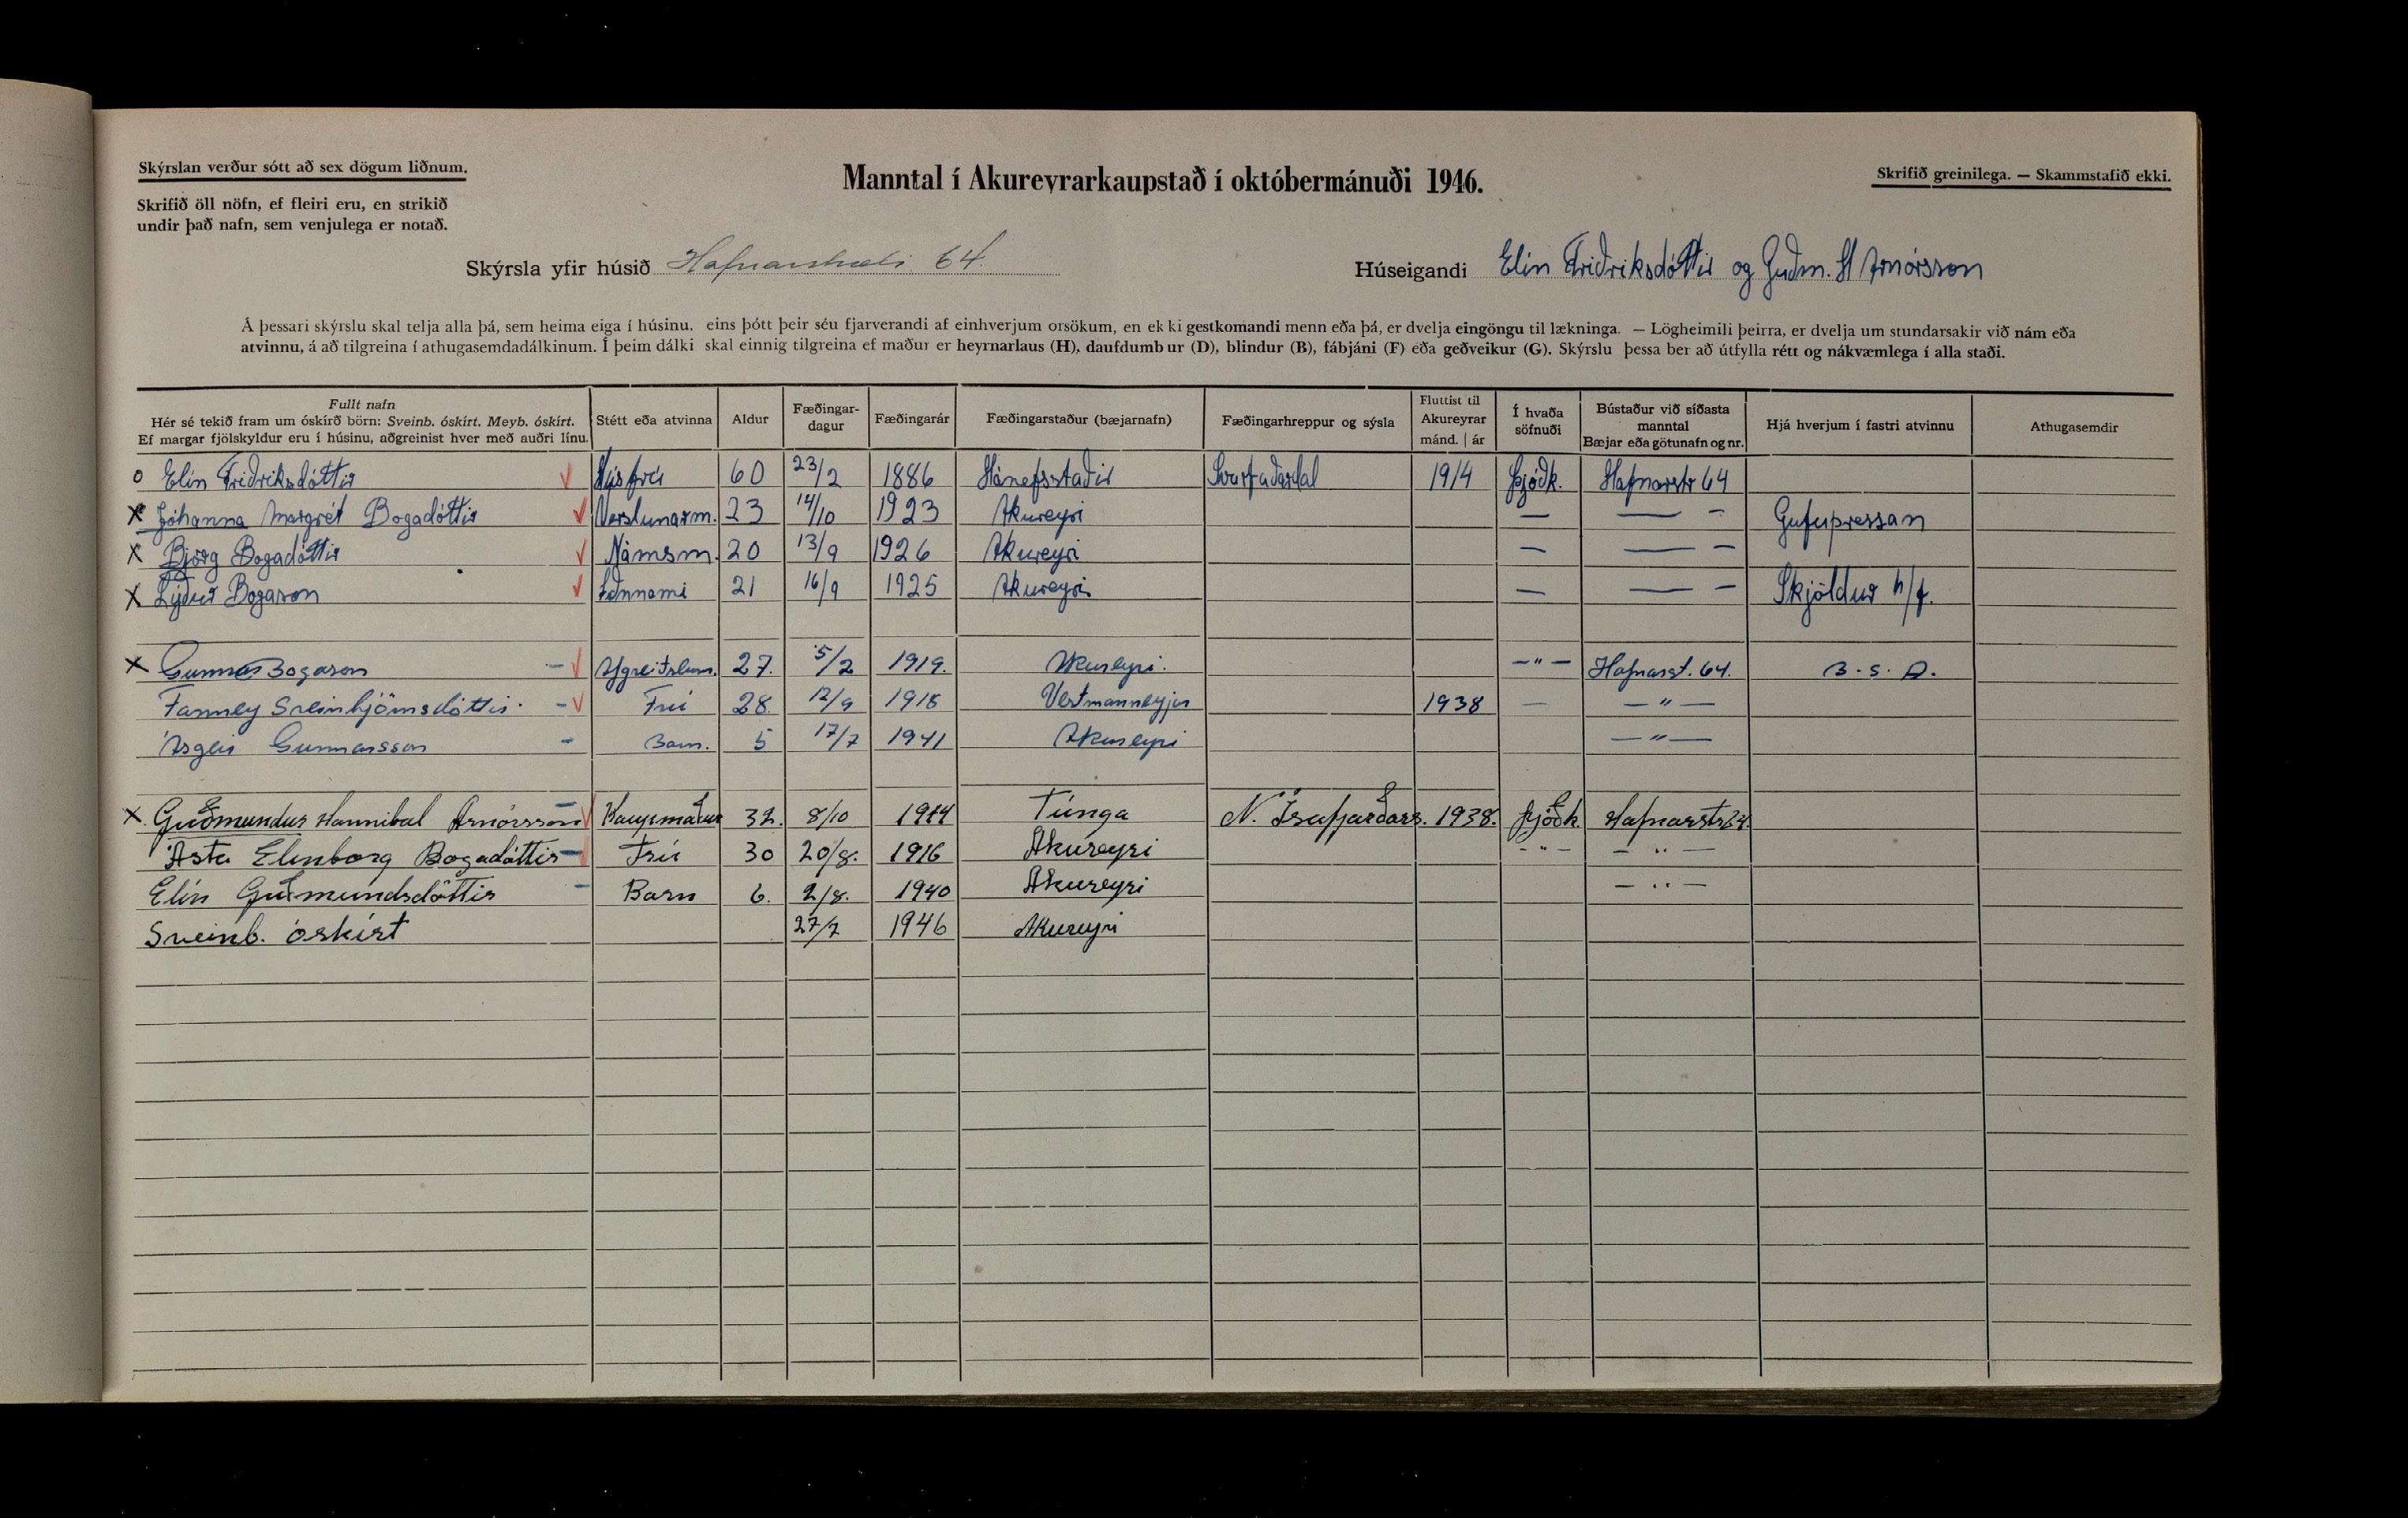 Skýrslan verður sótt að sex dögum liðnum.
Manntal í Akureyrarkaupstað í októbermánuði 1946.
Skrifið greinilega. — Skammstafið ekki.
Skrifið öll nöfn, ef fleiri eru, en strikið
undir það nafn, sem venjulega er notað.
Skýrsla yfir húsið Hafnarstræti 64.
Húseigandi Elín Friðriksdóttir og Guðm. H Arnórsson
Á þessari skýrslu skal telja alla þá, sem heima eiga í húsinu, eins þótt þeir séu fjarverandi af einhverjum orsökum, en ekki gestkomandi menn eða þá, er dvelja eingöngu til lækninga. — Lögheimili þeirra, er dvelja um stundarsakir við nám eða
atvinnu, á að tilgreina í athugasemdadálkinum. Í þeim dálki skal einnig tilgreina ef maður er heyrnarlaus (H), daufdumbur (D), blindur (B), fábjáni (F) eða geðveikur (G). Skýrslu þessa ber að útfylla rétt og nákvæmlega í alla staði.
Fullt nafn
Hér sé tekið fram um óskírð börn: Sveinb. óskírt. Meyb. óskírt.
Ef margar fjölskyldur eru í húsinu, aðgreinist hver með auðri línu.
Stétt eða atvinna
Aldur
Fæðingar-
dagur
Fæðingarár
Fæðingarstaður (bæjarnafn)
Fæðingarhreppur og sýsla
Fluttist til
Akureyrar
mánd. | ár
Í hvaða
söfnuði
Bústaður við síðasta
manntal
Bæjar eða götunafn og nr.
Hjá hverjum í fastri atvinnu
Athugasemdir
o Elín Friðriksdóttir √ Húsfrú 60 23/2 1886 Hánefsstaðir Svarfaðardal 1914 Þjóðk. Hafnarstr 64
x Jóhanna Margrét Bogadóttir √ Verslunarm. 23 14/10 1923 Akureyri — — — Gufupressan
x Björg Bogadóttir √ Námsm. 20 13/9 1926 Akureyri — — —
x Lýður Bogason √ Iðnnemi 21 16/9 1925 Akureyri — — — Skjöldur h/f.
x Gunnar Bogason — √ Afgreiðslum. 27. 5/2 1919. Akureyri. —"— Hafnarst. 64. B.S.A.
Fanney Sveinbjörnsdóttir. — √ Frú 28. 12/9 1918 Vestmanneyjur 1938 — —"—
Ásgeir Gunnarsson — Barn. 5 17/7 1941 Akureyri —"—
x. Guðmundur Hannibal Arnórsson — √ Kaupmaður 32. 8/10 1914 Túnga N. Ísafjarðars. 1938. Þjóðk. Hafnarstr 64.
Ásta Elinborg Bogadóttir — √ Frú 30 20/8. 1916 Akureyri —"— —"—
Elín Guðmundsdóttir — Barn 6. 2/8. 1940 Akureyri —"—
Sveinb. óskírt 27/7 1946 Akureyri